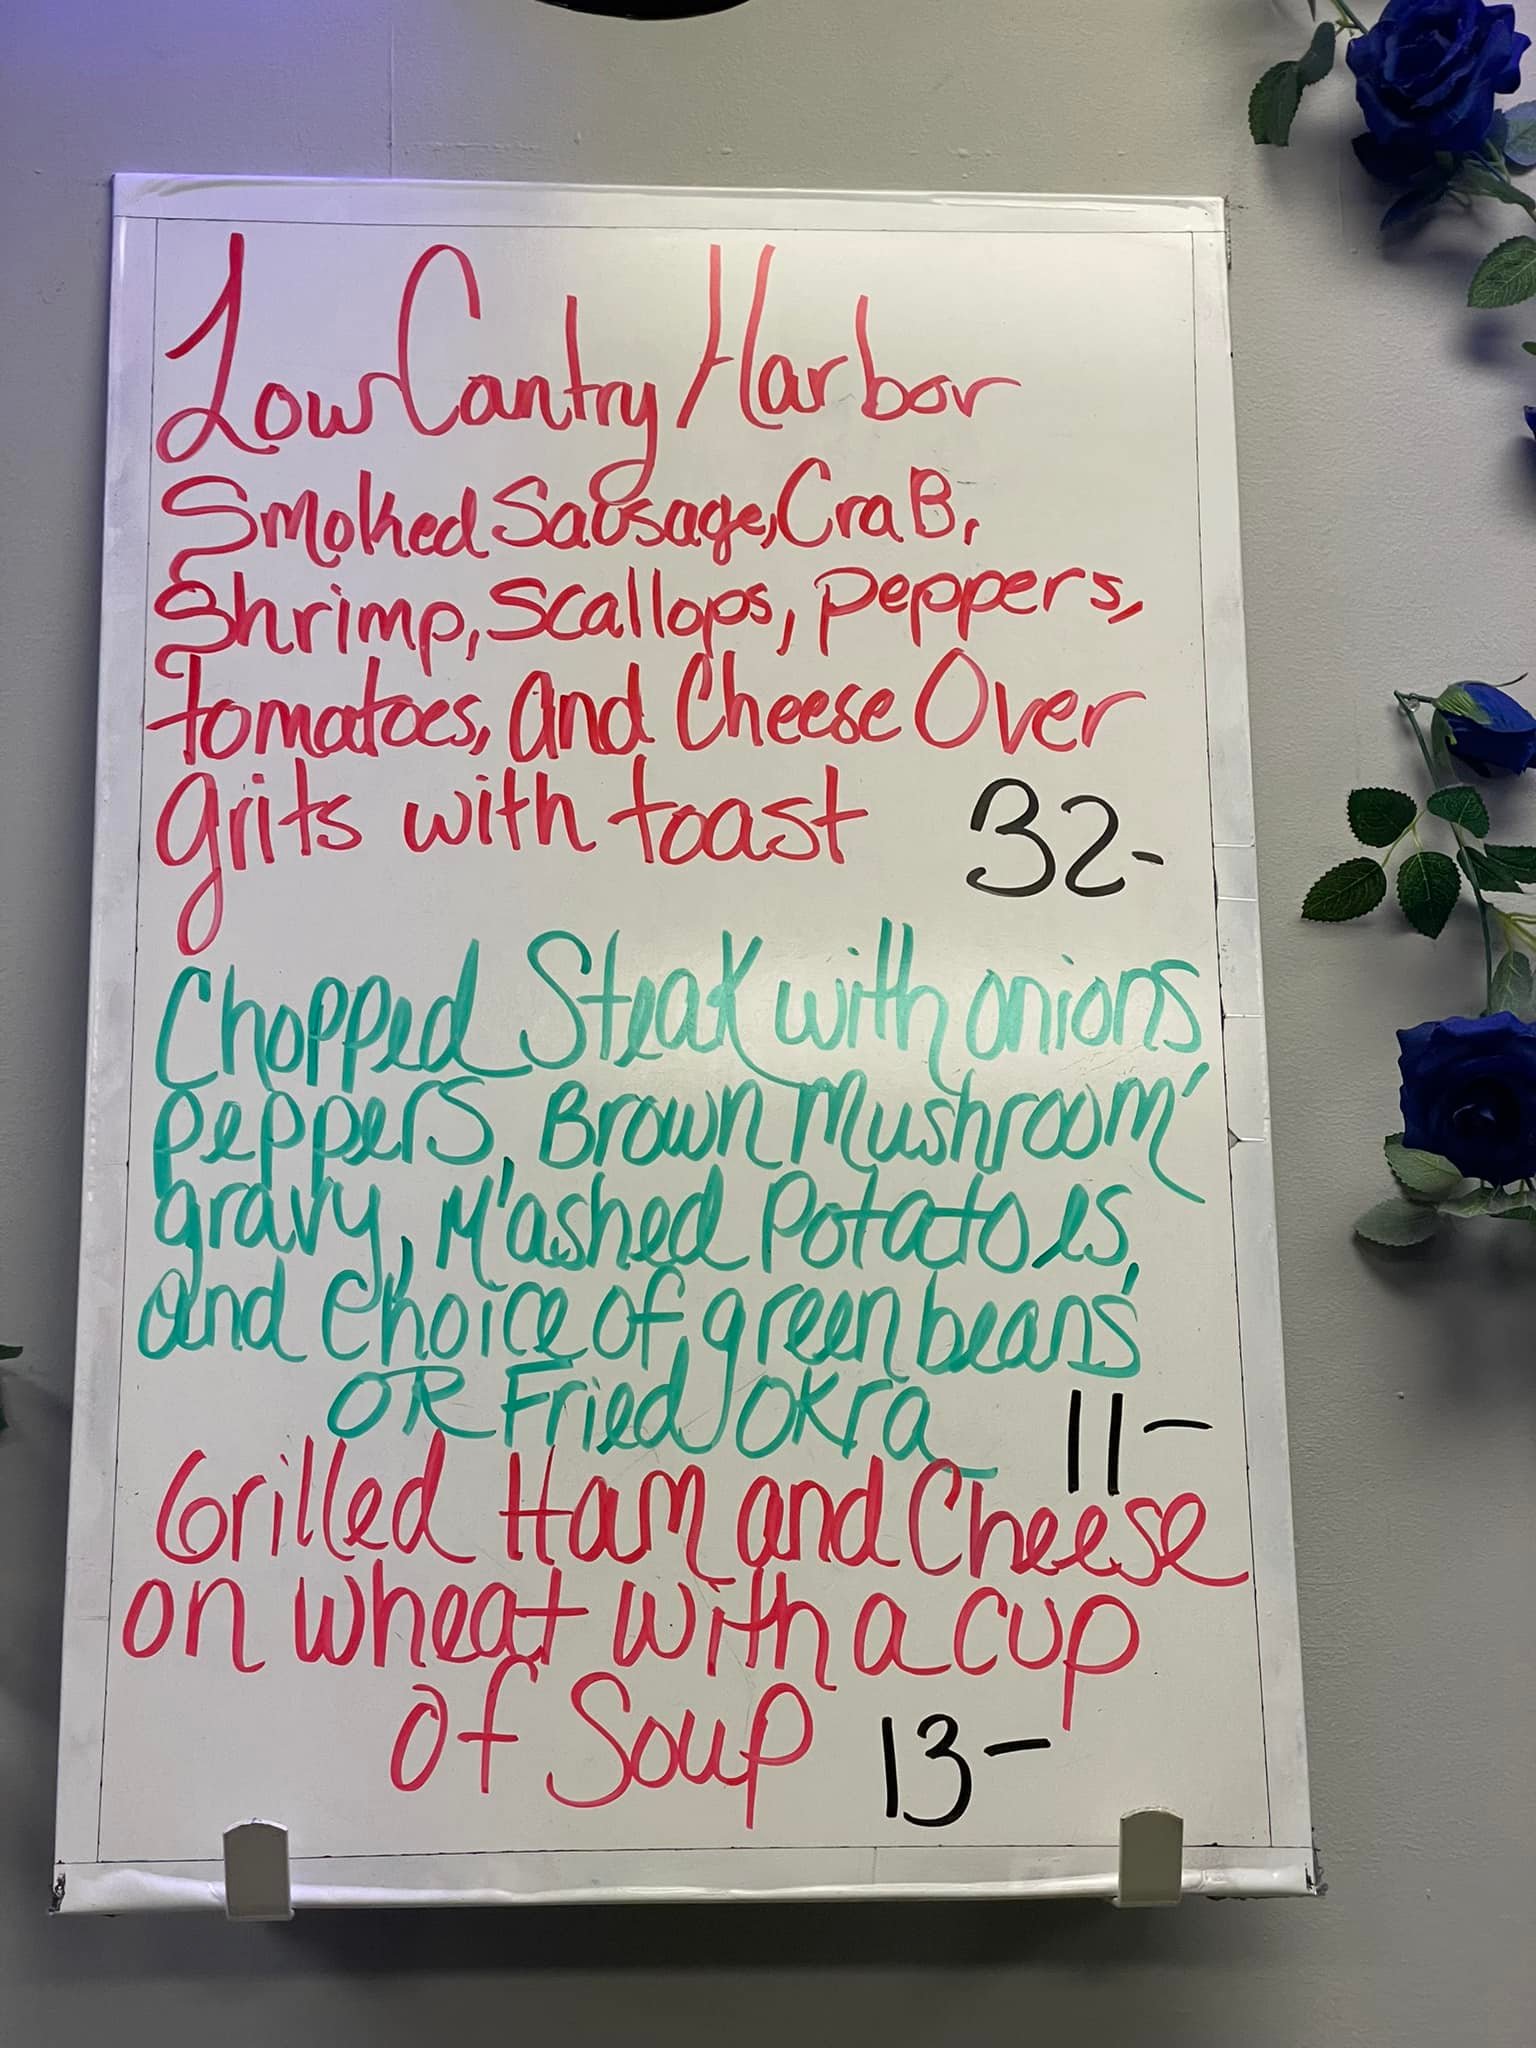 Low Cantry Harbor
Smoked Sausage, CraB,
Shrimp, Scallops, Peppers,
tomatoes, And Cheese Over
grits with toast 32-
Chopped Steak with onions
peppers, Brown Mushroom
gravy, Mashed Potatoes,
and choice of green beans
OR Fried okra 11-
Grilled Ham and Cheese
on wheat with a cup
of Soup 13-